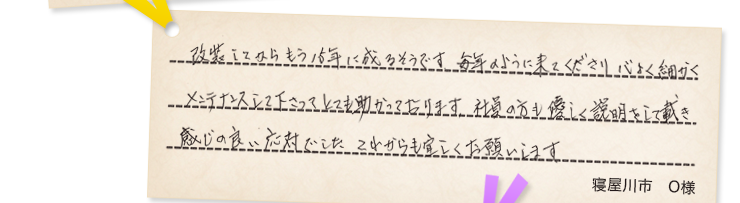 改装してからもう15年に成るそうです 毎年のように来てくださり 心よく細かく
メンテナンスして下さってとても助かっております 社員の方も優しく説明をして戴き
感じの良い応対でした これからも宜しくお願いします
寝屋川市 O様